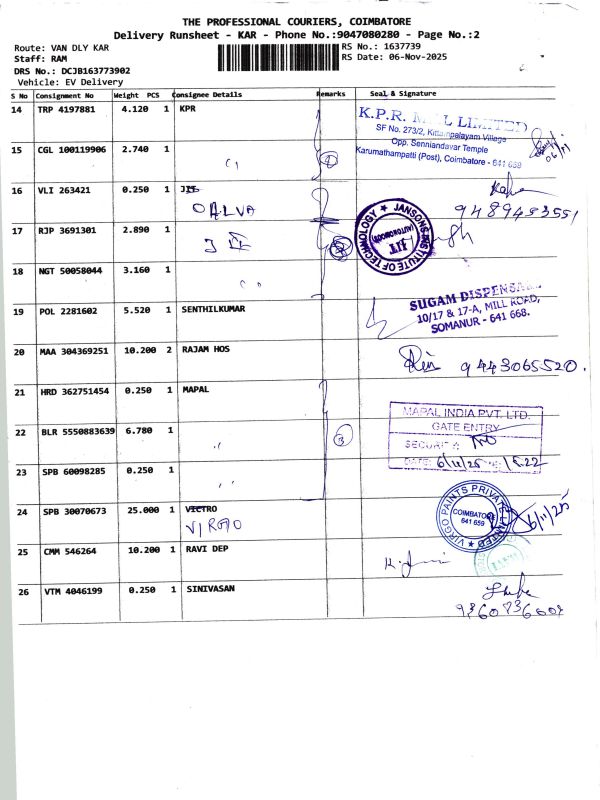 THE PROFESSIONAL COURIERS, COIMBATORE
Delivery Runsheet - KAR - Phone No.:9047080280 - Page No.:2
Route: VAN DLY KAR
Staff: RAM
DRS No.: DCJB163773902
Vehicle: EV Delivery
RS No.: 1637739
RS Date: 06-Nov-2025
S No Consignment No Weight PCS Consignee Details Remarks Seal & Signature
14 TRP 4197881 4.120 1 KPR
K.P.R. MILL LIMITED
SF No. 273/2, Kittampalayam Village
Opp. Senniandavar Temple
Karumathampatti (Post), Coimbatore - 641 659
06/11
15 CGL 100119906 2.740 1
16 VLI 263421 0.250 1 JIT
DALVA
9489493551
17 RJP 3691301 2.890 1
JIT
JANSONS INSTITUTE OF TECHNOLOGY
(AUTONOMOUS)
JIT
18 NGT 50058044 3.160 1
19 POL 2281602 5.520 1 SENTHILKUMAR
SUGAM DISPENSA
10/17 & 17-A, MILL ROAD,
SOMANUR - 641 668.
20 MAA 304369251 10.200 2 RAJAM HOS
9443065520.
21 HRD 362751454 0.250 1 MAPAL
MAPAL INDIA PVT. LTD.
GATE ENTRY
22 BLR 5550883639 6.780 1
3
SECURITY
DATE: 6/11/25 15.22
23 SPB 60098285 0.250 1
24 SPB 30070673 25.000 1 VICTRO
VIRGO
VIRGO PAINTS PRIVATE LIMITED
COIMBATORE
641 659
6/11/25
25 CMM 546264 10.200 1 RAVI DEP
26 VTM 4046199 0.250 1 SINIVASAN
9360736007